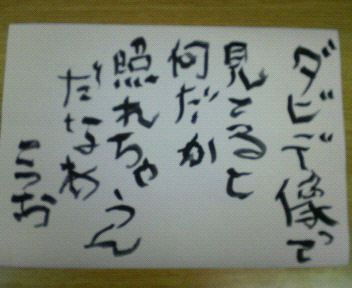 ダビデ像って
見とると
何だか
照れちゃうん
だなわ